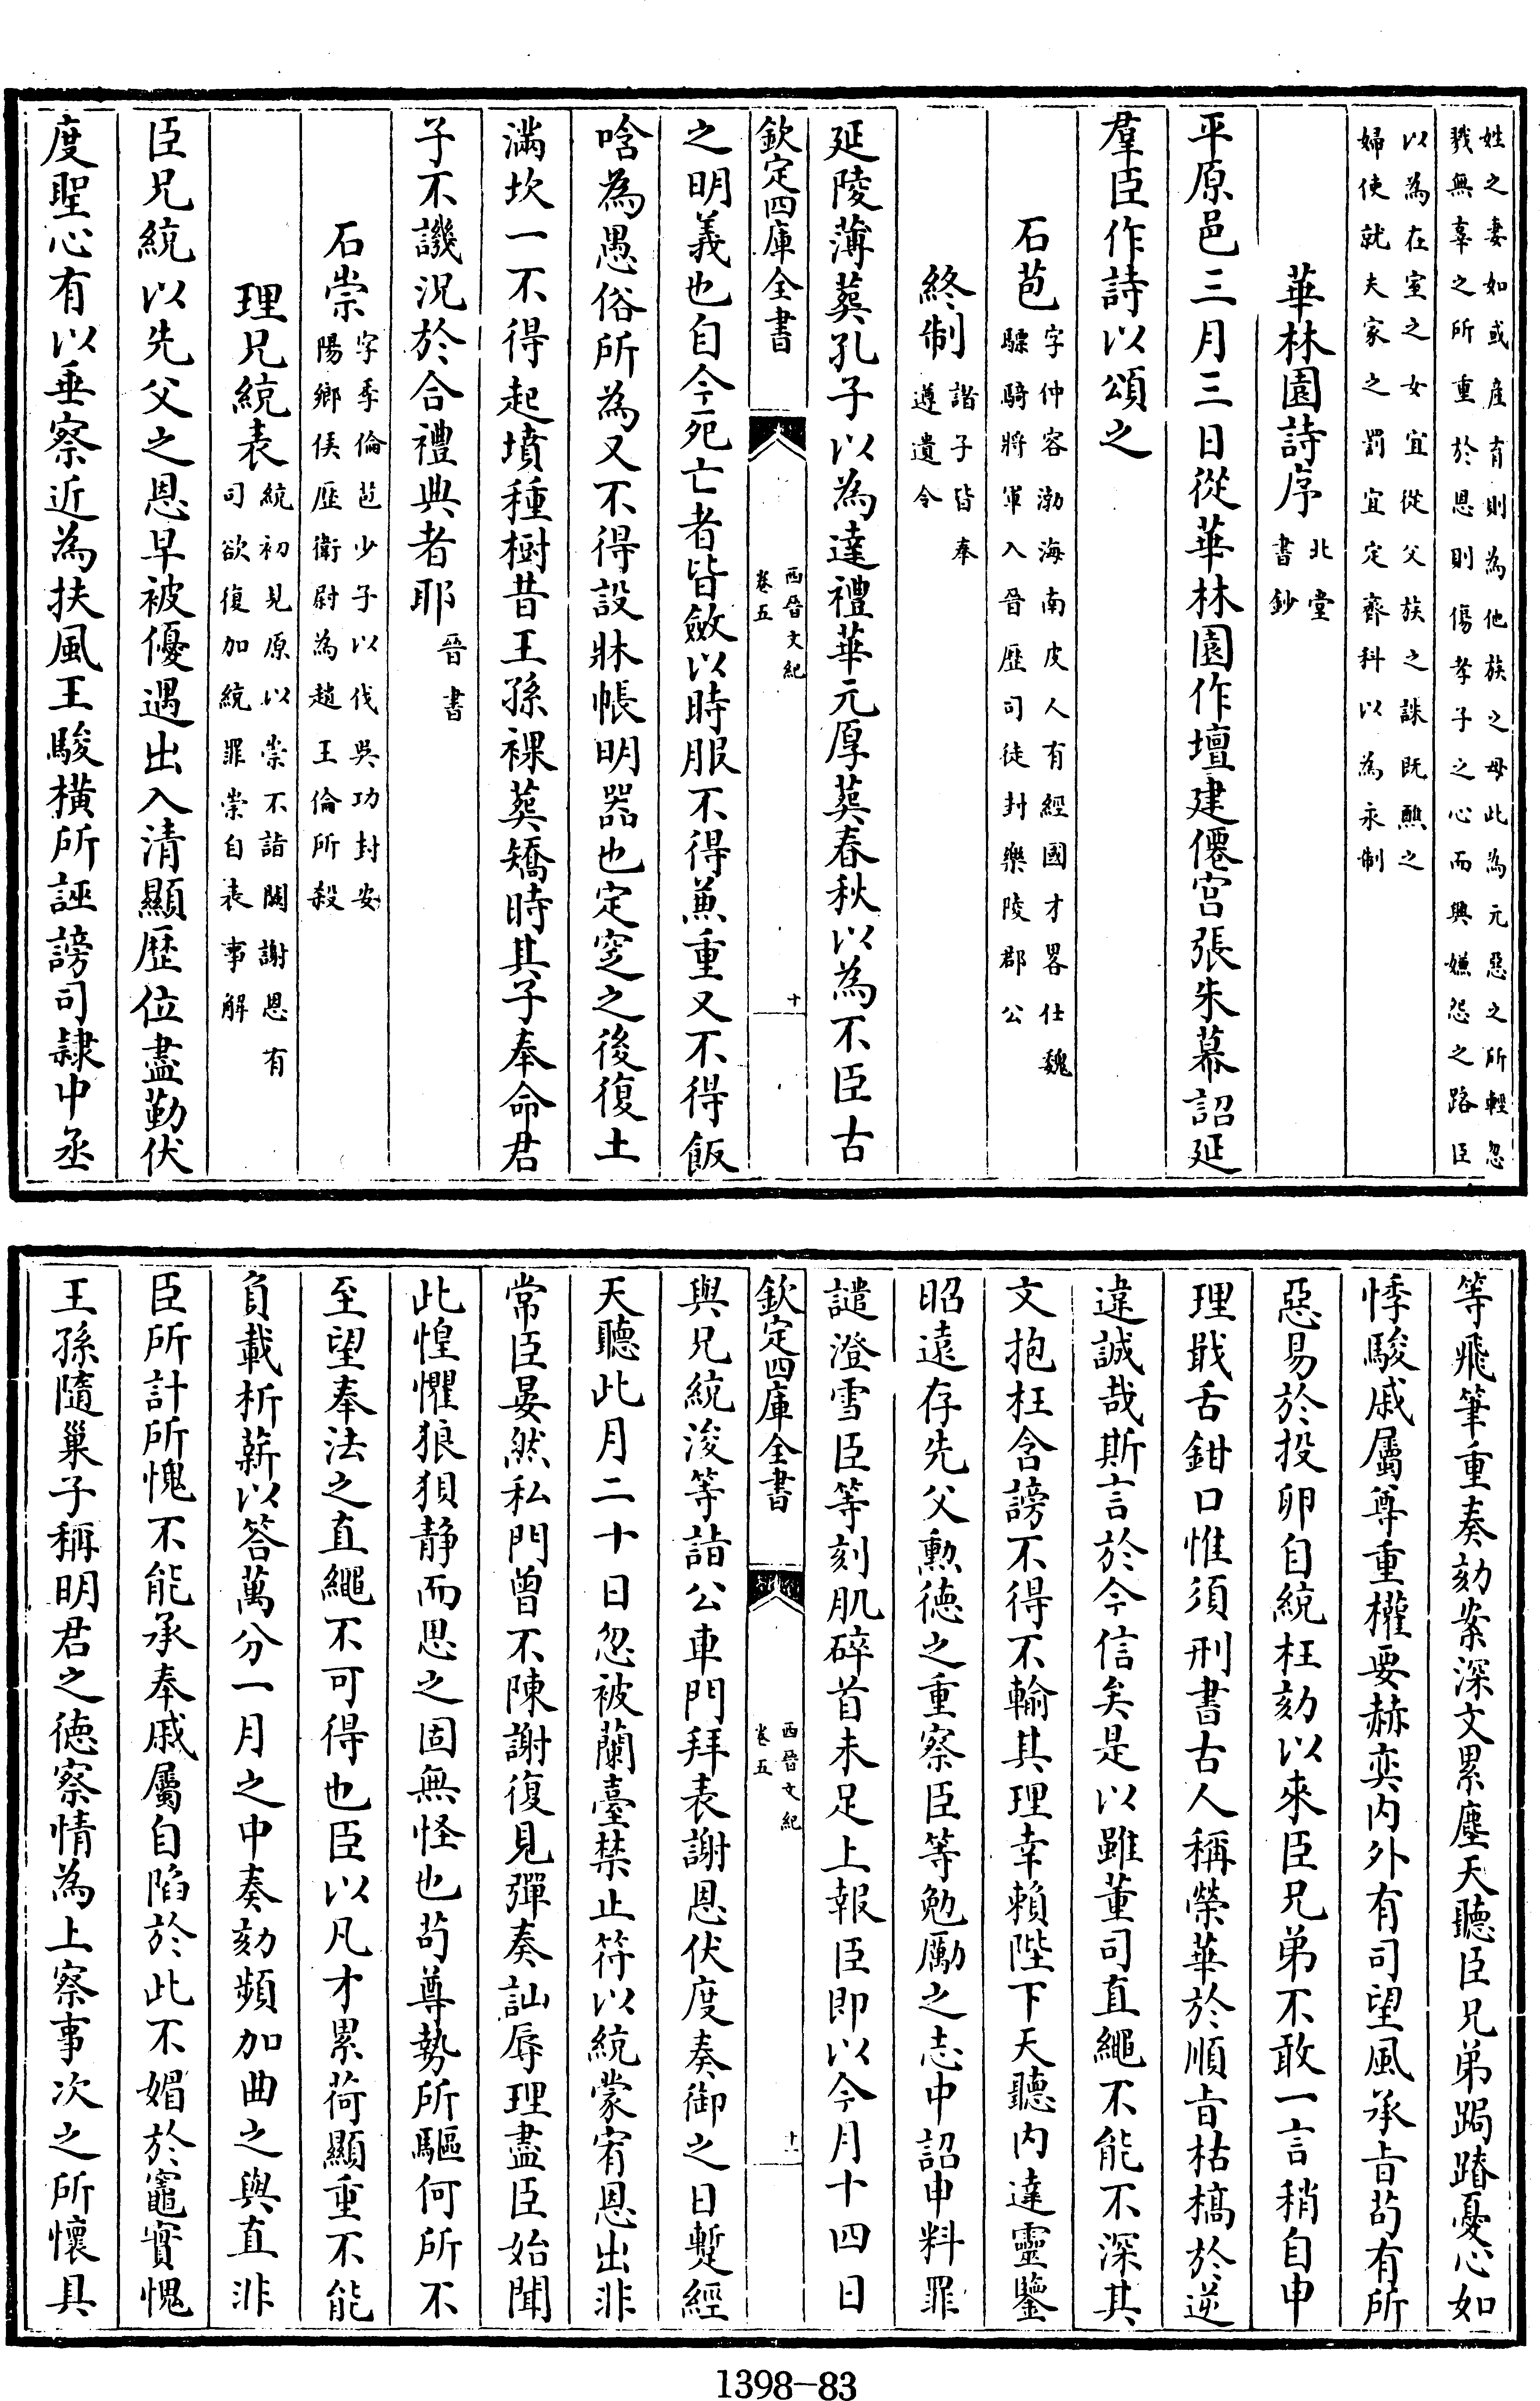 姓之妻如或産有則為他族之母此為元惡之所輕忽
戮無辜之所重於恩則傷孝子之心而興嫌怨之路臣
以為在室之女宜從父族之誅既醮之
婦使就夫家之罰宜定齊科以為永制
華林園詩序北堂
書鈔
平原邑三月三日從華林園作壇建僊宫張朱幕詔延
羣臣作詩以頌之
石苞字仲容渤海南皮人有經國才畧仕魏
驃騎將軍入晉歴司徒封樂陵郡公
終制諸子皆奉
遵遺令
延陵薄葬孔子以為達禮華元厚葬春秋以為不臣古
欽定四庫全書
西晉文紀
卷五
十
之明義也自今死亡者皆斂以時服不得蒹重又不得飯
唅為愚俗所為又不得設牀帳明器也定窆之後復土
滿坎一不得起墳種樹昔王孫裸葬矯時其子奉命君
子不譏況於合禮典者耶晉書
石崇字季倫苞少子以伐吳功封安
陽鄉侯歴衛尉為趙王倫所殺
理兄統表統初見原以崇不詣闕謝恩有
司欲復加統罪崇自表事解
臣兄統以先父之恩早被優遇出入清顯歴位盡勤伏
度聖心有以垂察近為扶風王駿橫所誣謗司隸中丞
等飛筆重奏劾案深文累塵天聽臣兄弟跼蹐憂心如
悸駿戚屬尊重權要赫奕内外有司望風承旨茍有所
惡易於投卵自統枉劾以來臣兄弟不敢一言稍自申
理戢舌鉗口惟須刑書古人稱榮華於順旨枯槁於逆
違誠哉斯言於今信矣是以雖董司直繩不能不深其
文抱枉含謗不得不輸其理幸賴陛下天聽内達靈鑒
昭遠存先父勲徳之重察臣等勉勵之志中詔申料罪
譴澄雪臣等刻肌碎首未足上報臣即以今月十四日
欽定四庫全書
西晉文紀
卷五
十一
與兄統浚等詣公車門拜表謝恩伏度奏御之日蹔經
天聽此月二十日忽被蘭臺禁止符以統蒙宥恩出非
常臣晏然私門曾不陳謝復見彈奏訕辱理盡臣始聞
此惶懼狼狽静而思之固無怪也茍尊勢所驅何所不
至望奉法之直繩不可得也臣以凡才累荷顯重不能
負載析薪以答萬分一月之中奏劾頻加曲之與直非
臣所計所愧不能承奉戚屬自陷於此不媚於竈實愧
王孫隨巢子稱明君之徳察情為上察事次之所懷具
1398-83